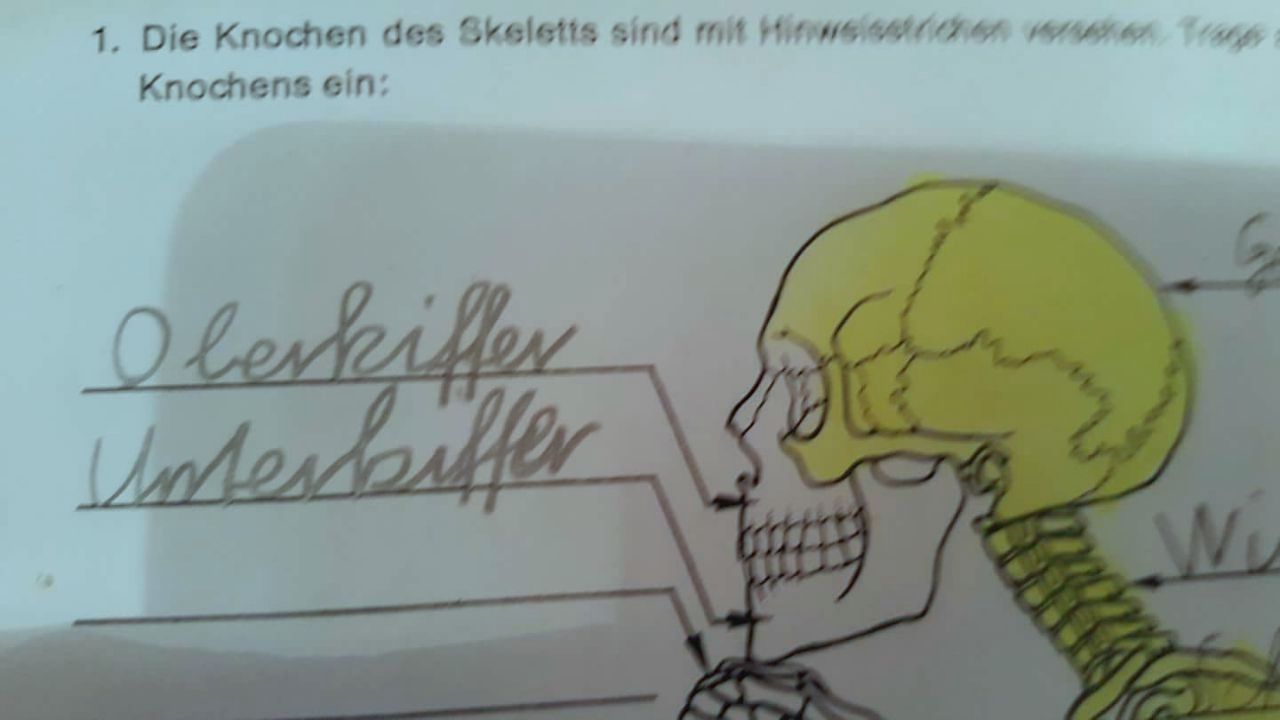 1. Die Knochen des Skeletts sind mit Hinweisstrichen versehen. Trage
Knochens ein:
Oberkiffer
Unterkiffer
Wi